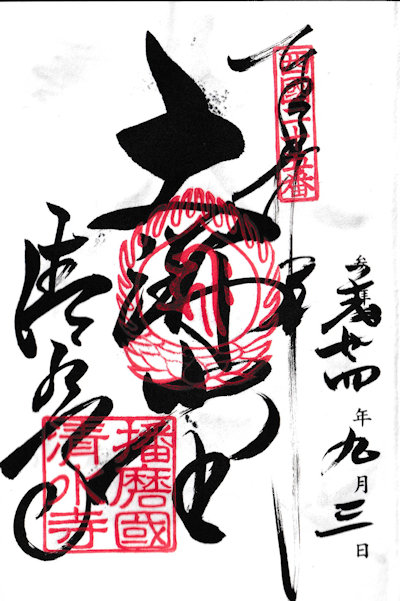 西國二十五番
大講堂
清水寺
播磨國
清水寺
廿四年九月三日